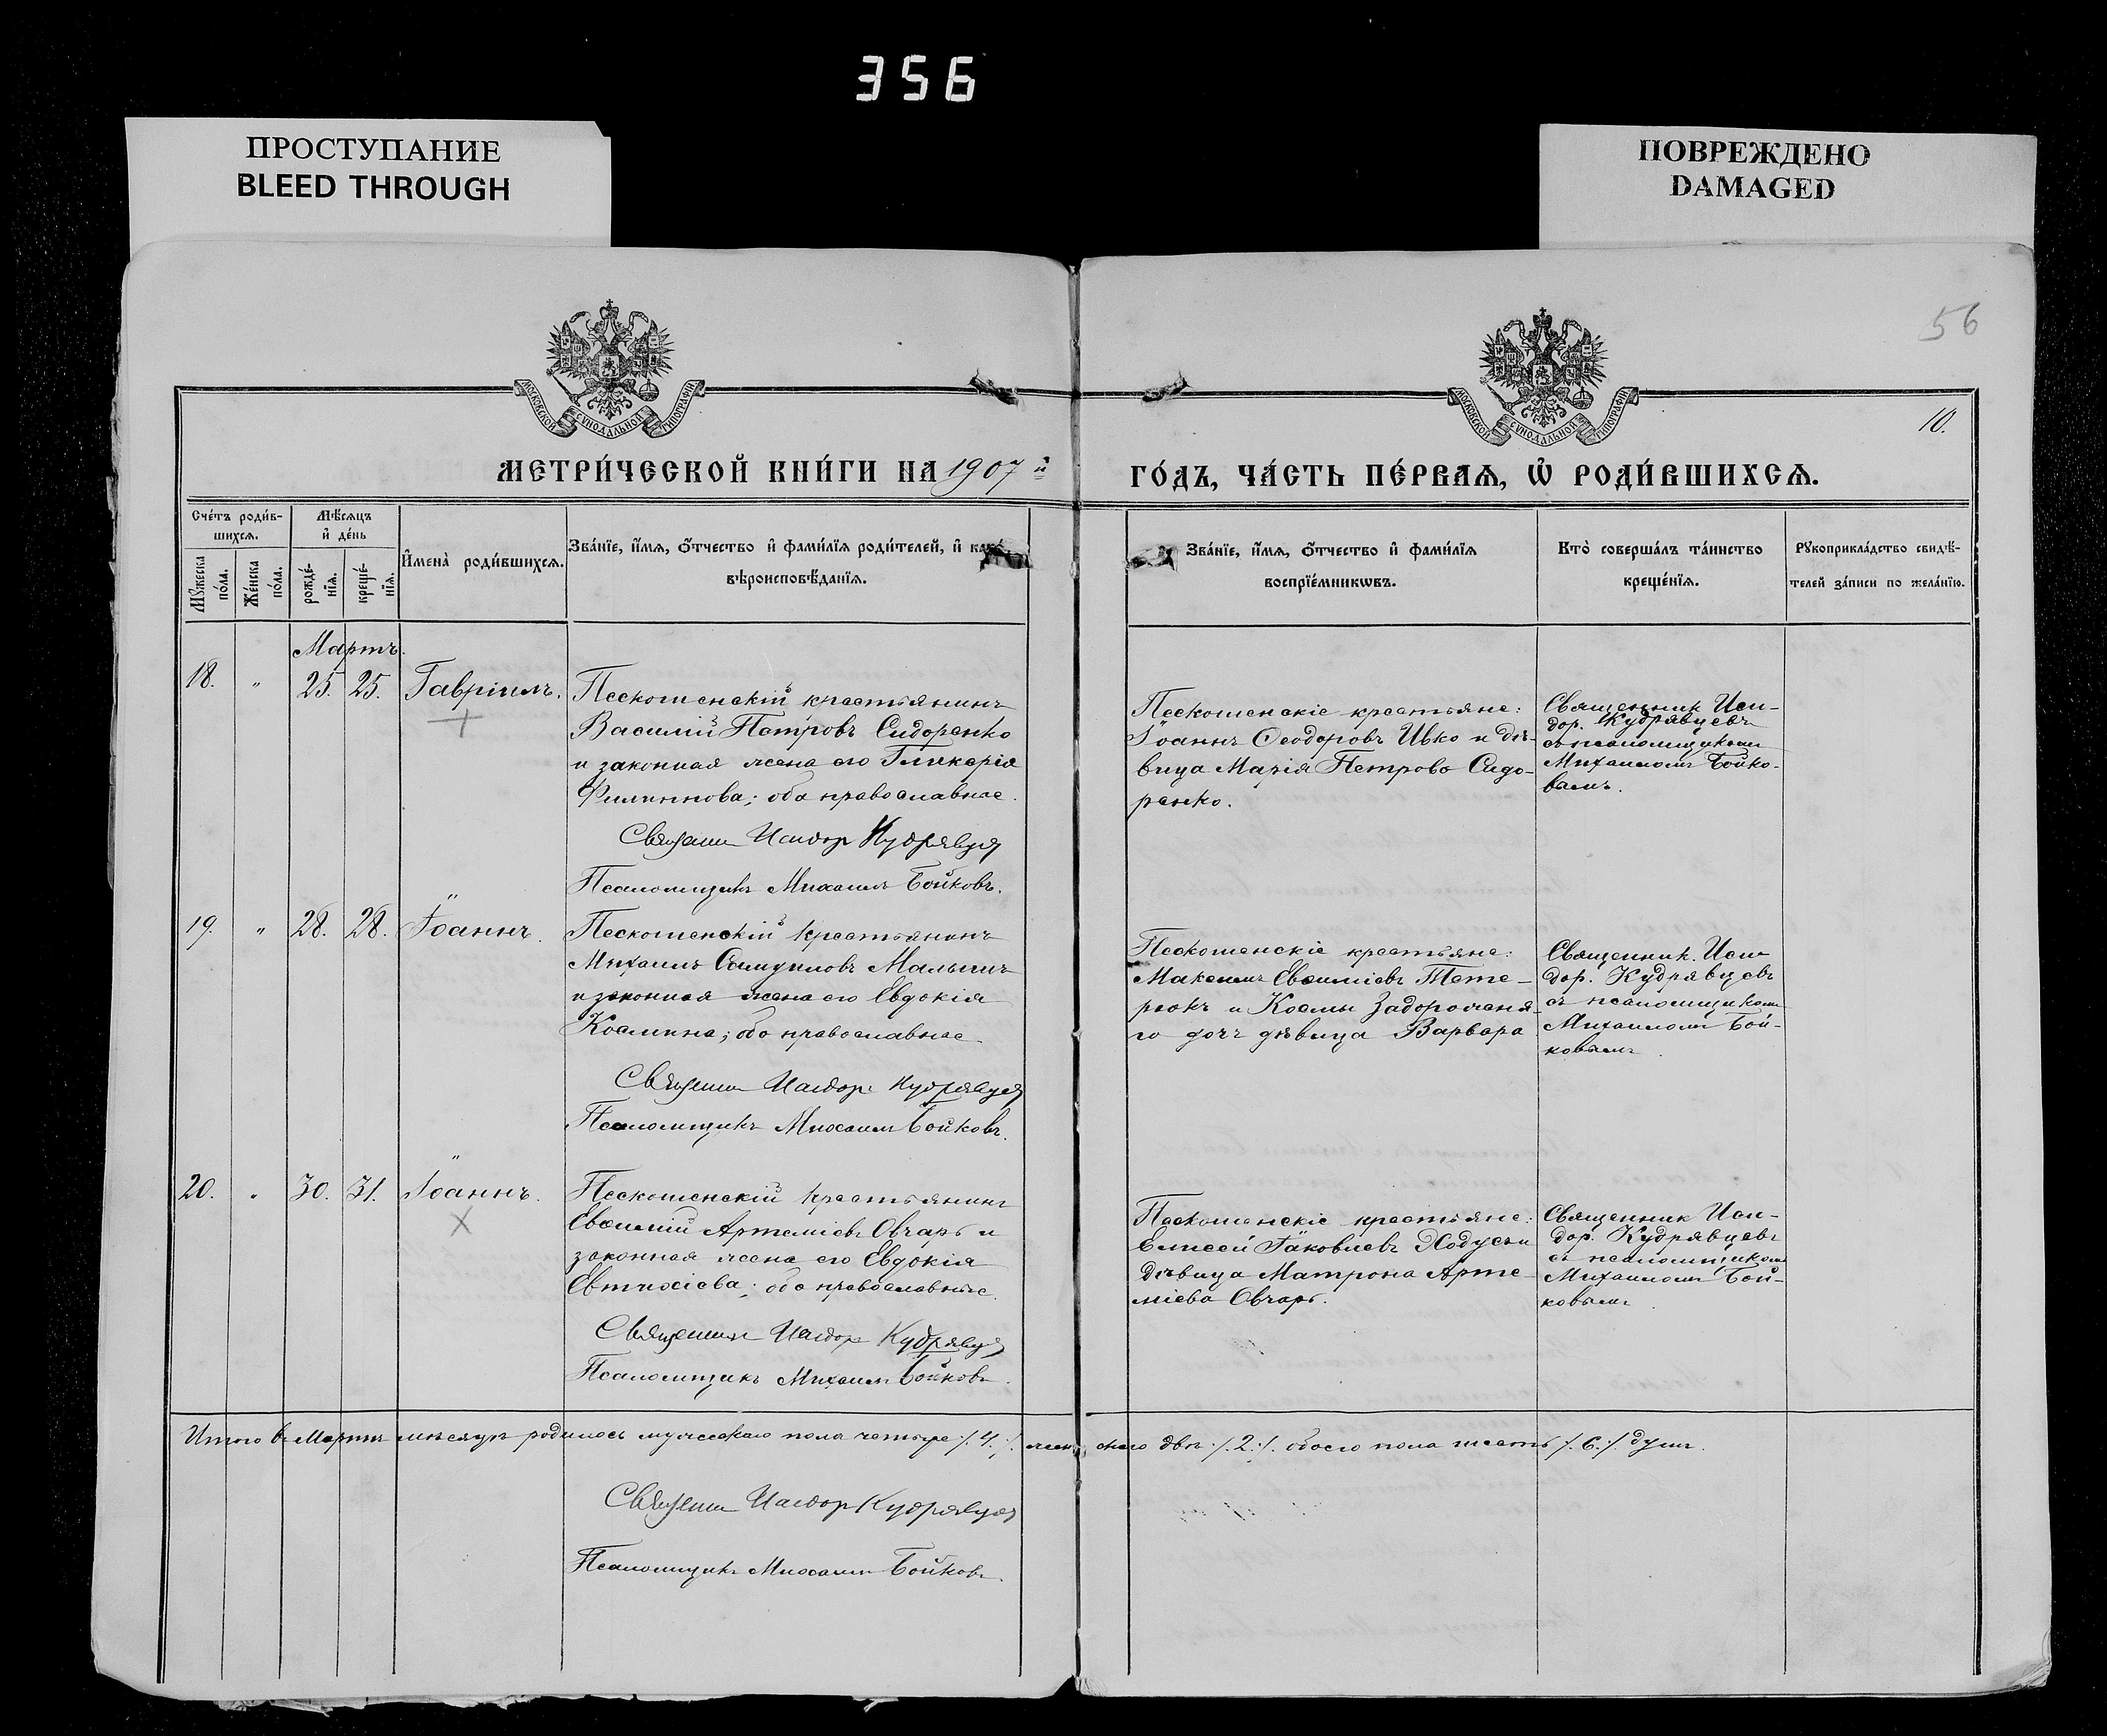 356
ПРОСТУПАНИЕ
BLEED THROUGH
ПОВРЕЖДЕНО
DAMAGED
56
МОСКОВСКОЙ СѴНОДАЛЬНОЙ ТИПОГРАФІИ
МОСКОВСКОЙ СѴНОДАЛЬНОЙ ТИПОГРАФІИ
10.
МЕТРИ́ЧЕСКОЙ КНИ́ГИ НА 1907 й
ГО́ДЪ, ЧА́СТЬ ПЕ́РВАѦ, Ѽ РОДИ́ВШИХСѦ.
Сче́тъ роди́в-
шихсѧ.
Мѣ́сѧцъ
и҆ де́нь
Мꙋ́жеска по́ла.
Же́нска по́ла.
рожде́-
нїѧ.
креще́-
нїѧ.
И҆мена̀ роди́вшихсѧ.
Зва́нїе, и҆́мѧ, ѻ҆́тчество и҆ фами́лїѧ роди́телей, и҆ како́
вѣроисповѣ́данїѧ.
Зва́нїе, и҆́мѧ, ѻ҆́тчество и҆ фами́лїѧ
воспрїе́мникѡвъ.
Кто̀ соверша́лъ та́инство
креще́нїѧ.
Рꙋкоприкла́дство свидѣ́-
телей за́писи по жела́нїю.
Мартъ.
18. " 25. 25. Гавріилъ.
Пескошенскій крестьянинъ
Василій Петровъ Сидоренко
и законная жена его Гликерія
Филиппова; оба православные.
Священн Исидор Кудрявце
Псаломщикъ Михаилъ Бойковъ.
Пескошенскіе крестьяне:
Іоаннъ Ѳеодоровъ Ивко и дѣ-
вица Марія Петрова Сидо-
ренко.
Священник Иси-
дор. Кудрявцевъ
съ псаломщикомъ
Михаиломъ Бойко-
вымъ.
19. " 28. 28. Іоаннъ.
Пескошенскій крестьянинъ
Михаилъ Самуиловъ
и законная жена его Евдокія
Космина; оба православные.
Священн Исидор Кудрявце
Псаломщикъ Михаилъ Бойковъ.
Пескошенскіе крестьяне:
Максимъ Евѳиміевъ Тете-
рюкъ и Космы Задорожня-
го дочь дѣвица Варвара
Священник. Иси
дор. Кудрявцевъ
съ псаломщикомъ
Михаиломъ Бой-
ковымъ.
20. " 30. 31. Іоаннъ.
Пескошенскій крестьянинъ
Евѳимій Артеміевъ Овчаръ и
законная жена его Евдокія
Евтихіева; оба православные.
Священник Исидор Кудрявце
Псаломщикъ Михаилъ Бойковъ.
Пескошенскіе крестьяне:
Елисей Іаковлевъ Ходусъ и
дѣвица Матрона Арте-
міева Овчаръ.
Священник Иси-
дор. Кудрявцевъ
съ псаломщикомъ
Михаиломъ Бой-
ковымъ.
Итого въ Мартѣ мѣсяцѣ родилось мужескаго пола четыре ./. 4 ./. женскаго двѣ ./. 2 ./. обоего пола шесть ./. 6 ./. душъ.
Священн Исидор Кудрявце
Псаломщикъ Михаилъ Бойковъ.